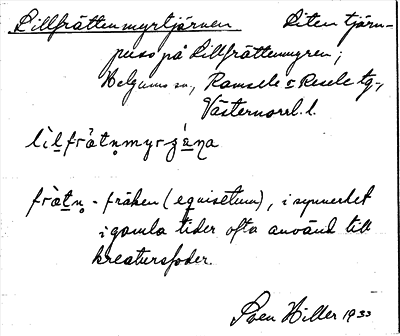 Lillfrättenmyrtjärnen Liten tjärn-
puss på Lillfrättenmyren;
Helgums sn, Ramsele o Resele tg,
Västernorrl. l.
lìlfrȧ̀tn̥myrʒæ̀na
frȧ̀tn̥ - fräken (equisetum), i synnerhet
i gamla tider ofta använd till
kreatursfoder.
Sven Hiller 1933